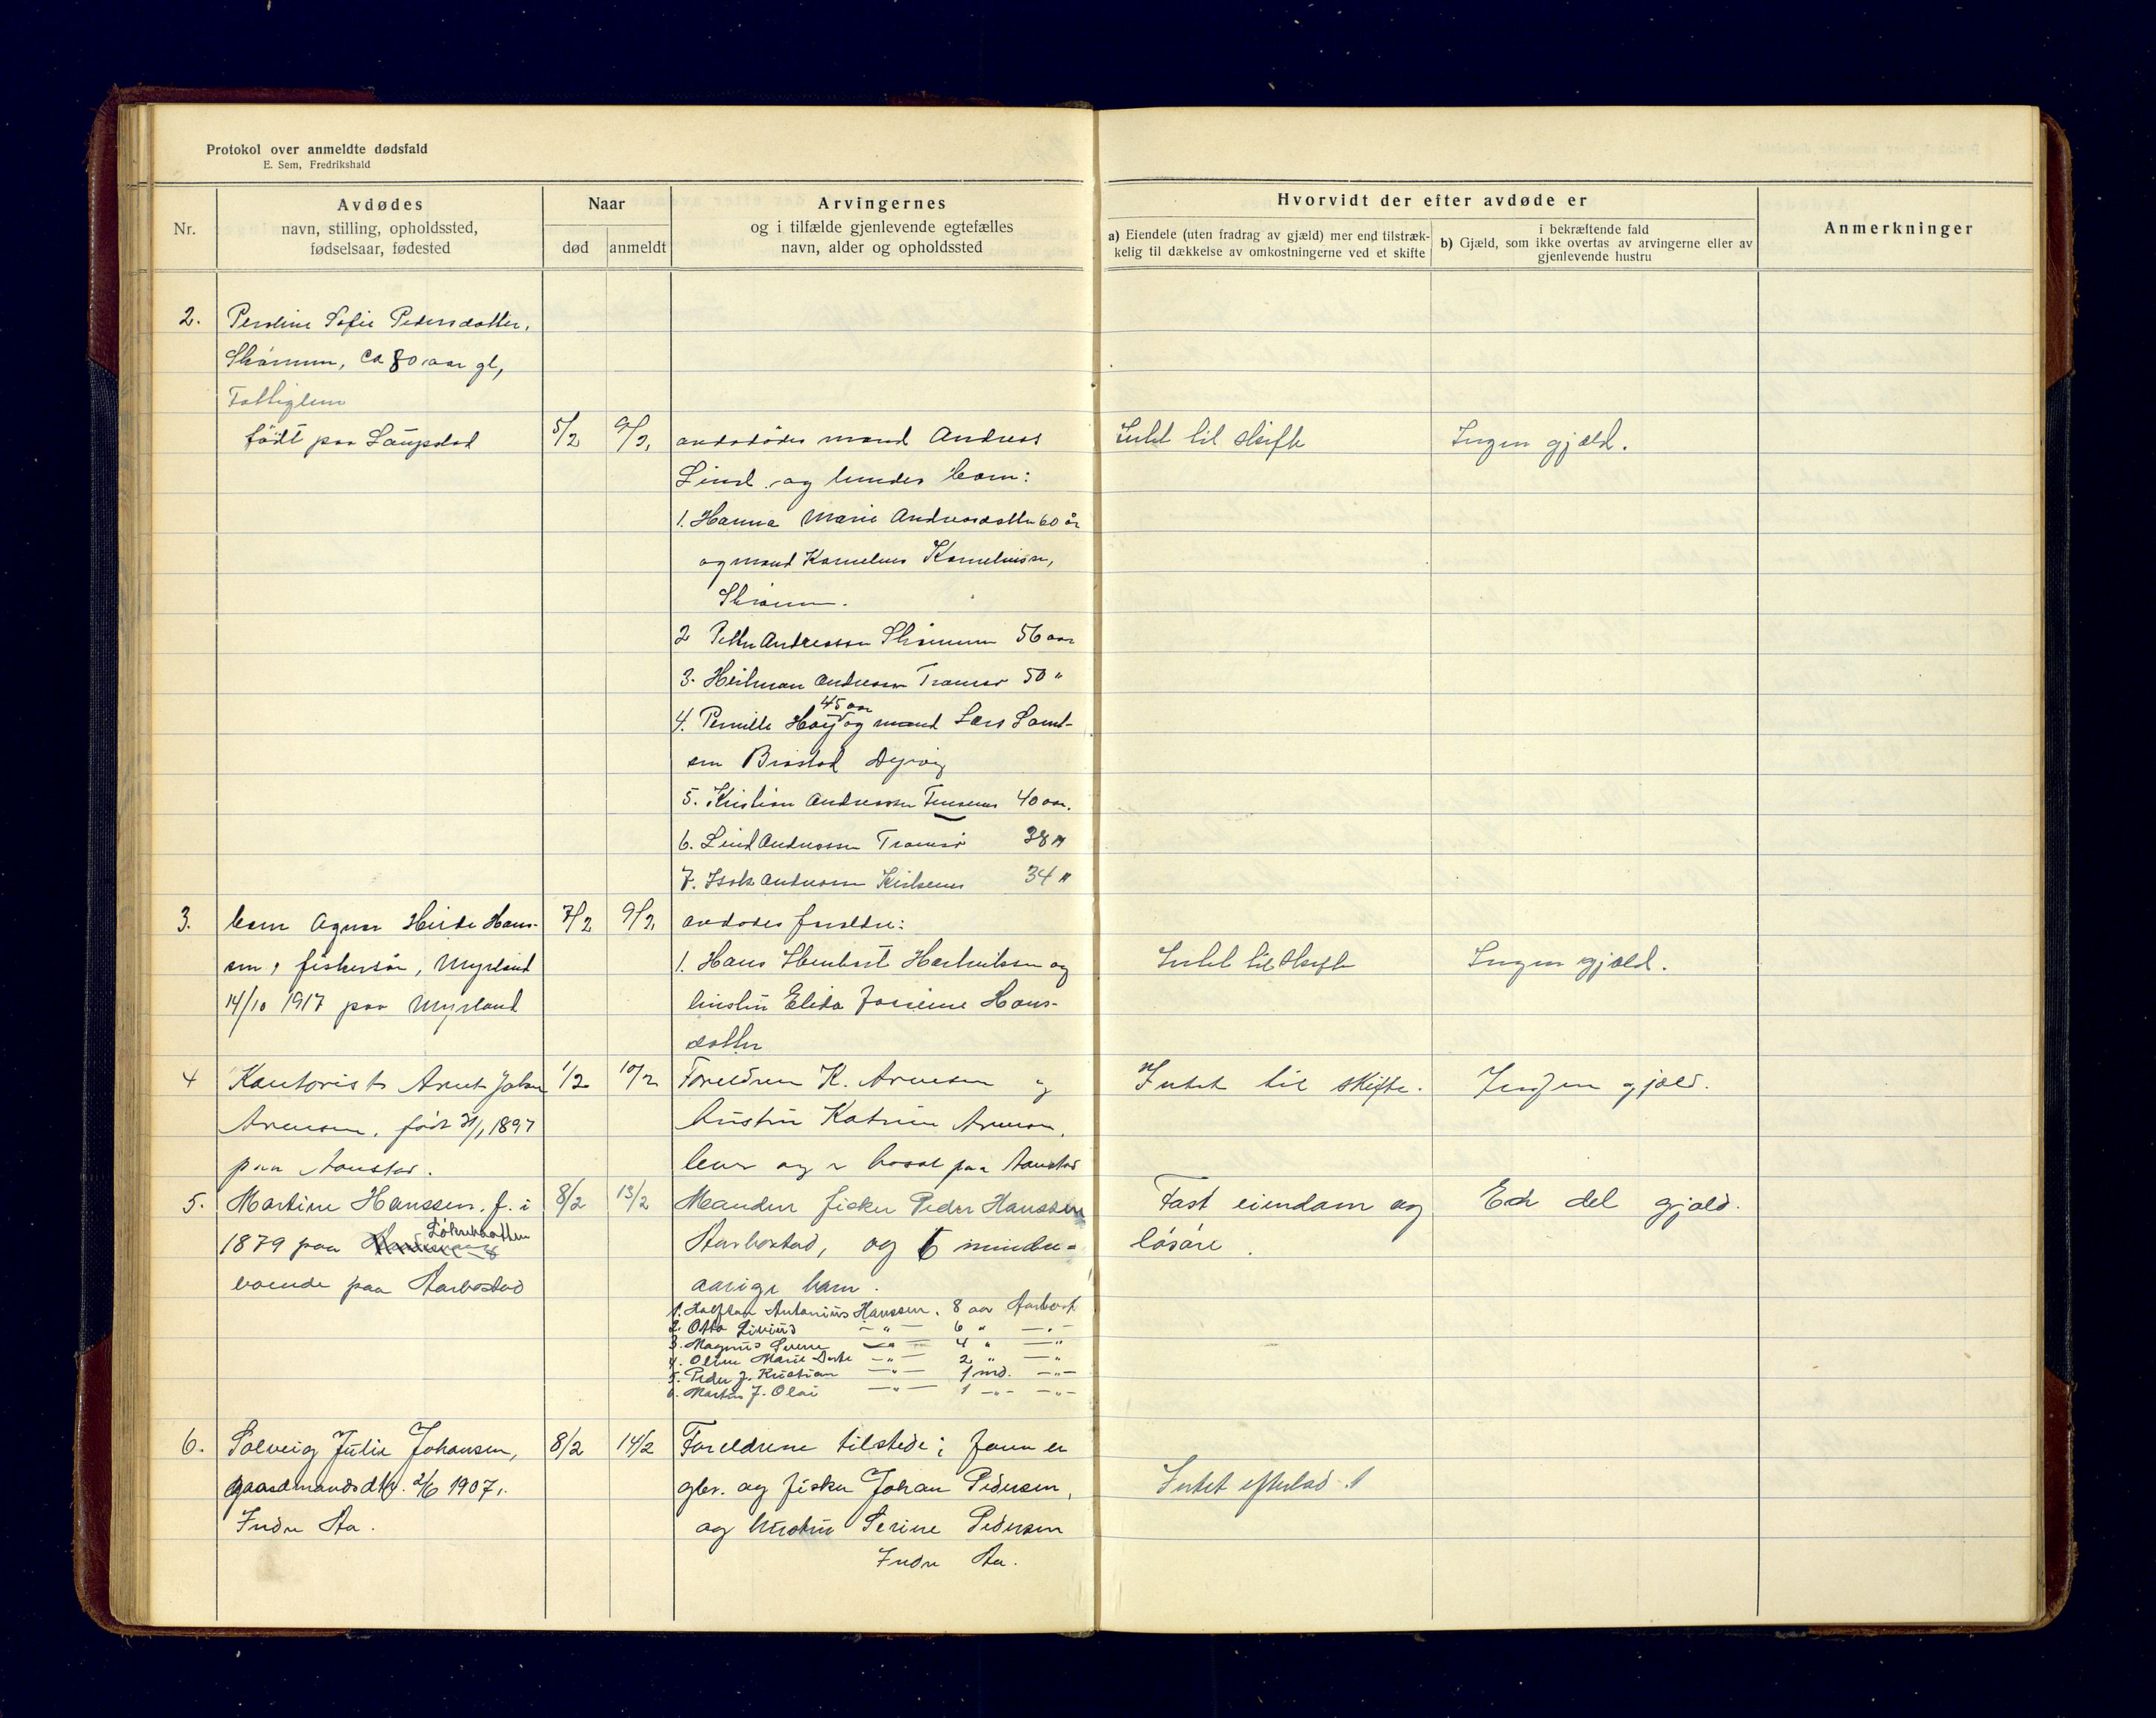 Protokol over anmeldte dødsfald
E. Sem, Fredrikshald
Nr.
Avdødes
navn, stilling, opholdssted,
fødselsaar, fødested
Naar
død
anmeldt
Arvingernes
og i tilfælde gjenlevende egtefælles
navn, alder og opholdssted
Hvorvidt der efter avdøde er
a) Eiendele (uten fradrag av gjæld) mer end tilstræk-
kelig til dækkelse av omkostningerne ved et skifte
i bekræftende fald
b) Gjæld, som ikke overtas av arvingerne eller av
gjenlevende hustru
Anmerkninger
2.
Peroline Sofie Pedersdatter,
Skårum, ca 80 aar gl,
Fattiglem
født paa Laupstad
5/2
9/2
avdødes mand Andreas
Lind og hendes barn:
1. Hanna Marie Andreasdatter 60 år
og mand Kornelius Korneliussen,
2 Petter Andreassen 56 aar
3. Heilman Andreassen Tromsø 50 "
45 aar
4. Pernille og mand Lars
sen Brostad Dyrøy
5. Kristian Andreassen 40 aar.
6. Lind Andreassen Tromsø 38 "
7. Isak Andreassen 34 "
Intet til skifte
Ingen gjæld.
3.
barn Agnar Hans-
sen, fiskersøn, Myrland
14/10 1917 paa Myrland
7/2
9/2
avdødes foreldre:
1. Hans og
hustru Elida Hans-
datter
Intet til skifte
Ingen gjæld.
4
Kontorist Arent Johan
Arnesen, født 31/1 1897
paa Aanstad.
1/2
10/2
Foreldren K. Arnesen og
hustru Katrine Arnesen,
lever og er bosat paa Aanstad
Intet til skifte.
Ingen gjæld.
5.
Martine Hanssen, f. i
1879 paa
boende paa Aarbostad
8/2
13/2
Manden fisker Peder Hanssen
Aarbostad, og 6 minder=
aarige barn.
1. Halfdan Antonius Hanssen, 8 aar Aarbost
2. Otto Livius —"— 6 " —"—
3. Magnus —"— 4 " —"—
4. Oline Marie —"— 2 " —"—
5. Peder J. Kristian —"— 1 md. —"—
6. Martin J. Olai —"— 1 —"— —"—
Fast eiendom og
løsøre.
En del gjæld.
6.
Solveig Julie Johansen,
gaardmandsdtr. 2/6 1907,
Indre Aa.
8/2
14/2
Foreldrene tilstede; faren er
gbr. og fisker Johan Pedersen,
og hustru Serine Pedersen
Indre Aa.
Intet efterlad.